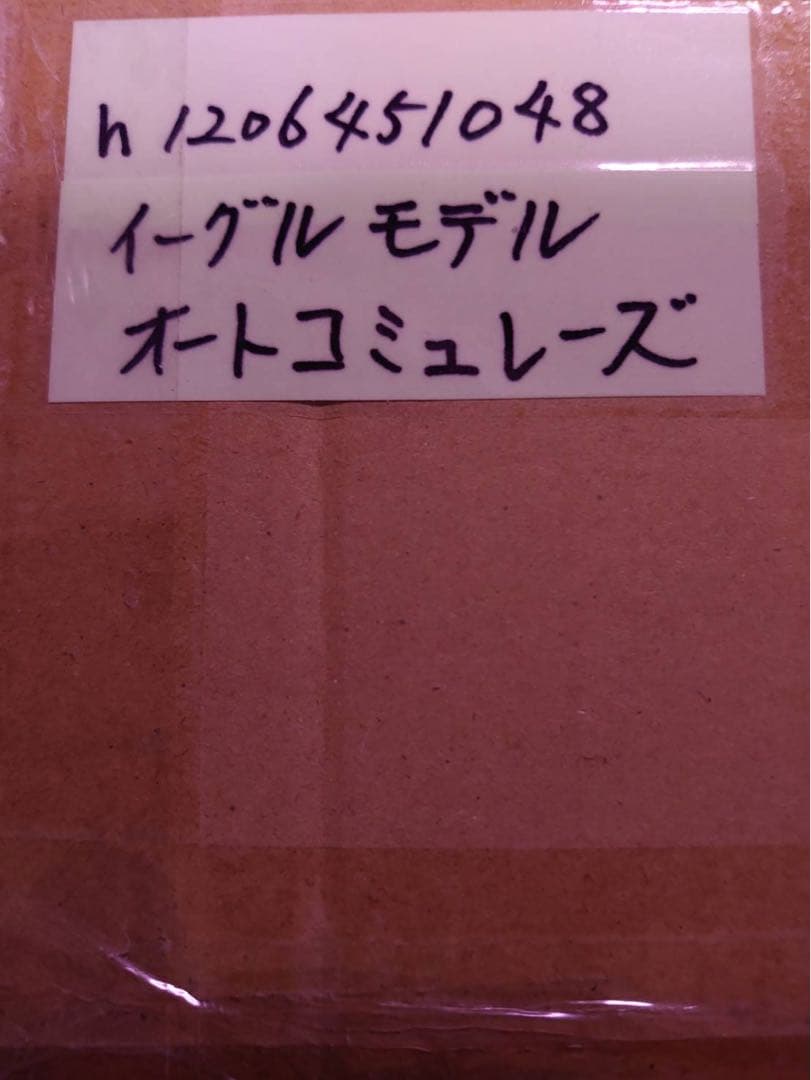 h1206451048
イーグル モデル
オートコミュレーズ